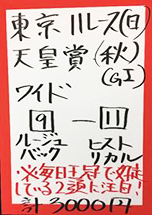 東京11レース(日)
天皇賞(秋)
(GI)
ワイド
9 — 11
ルージュ ヒスト
バック リカル
※毎日王冠で好走
している2頭に注目!
計3000円